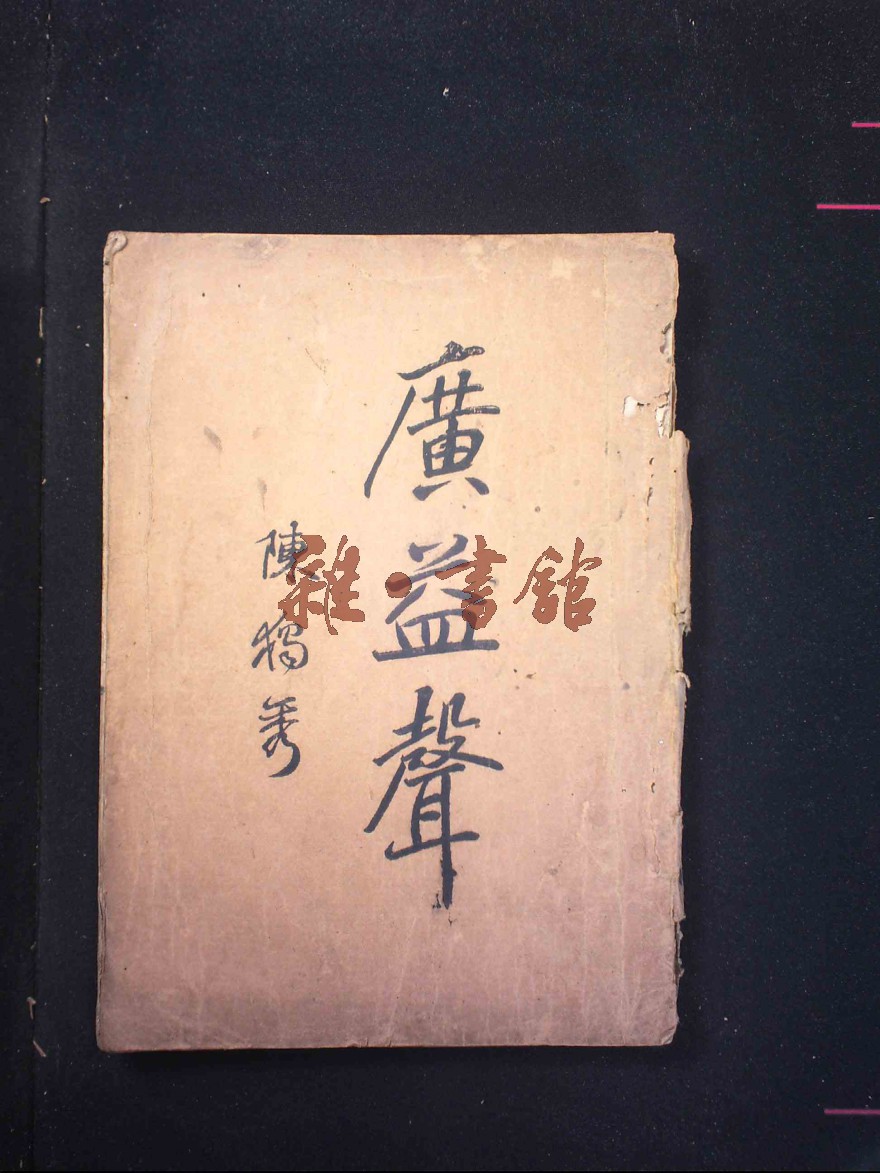 廣益聲
陳獨秀
雜·書館